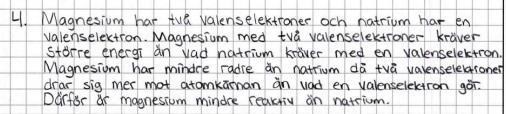 4. Magnesium har två valenselektroner och natrium har en
valenselektron. Magnesium med två valenselektroner kräver
större energi än vad natrium kräver med en valenselektron.
Magnesium har mindre radie än natrium då två valenselektroner
drar sig mer mot atomkärnan än vad en valenselektron gör.
Därför är magnesium mindre reaktiv än natrium.